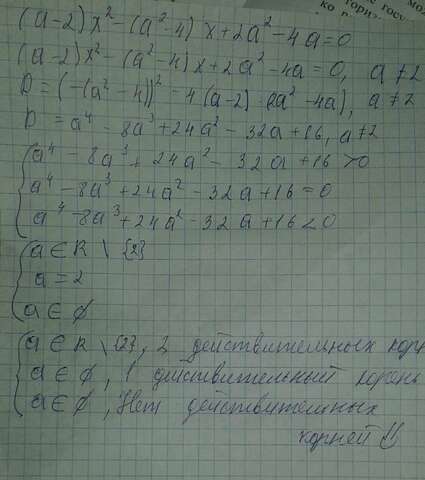 (a-2)x²-(a²-4)x+2a²-4a=0
(a-2)x²-(a²-4)x+2a²-4a=0, a≠2
D=(-(a²-4))²-4(a-2)·(2a²-4a), a≠2
D=a⁴-8a³+24a²-32a+16, a≠2
a⁴-8a³+24a²-32a+16>0
a⁴-8a³+24a²-32a+16=0
a⁴-8a³+24a²-32a+16<0
a∈R\{2}
a=2
a∈∅
a∈R\{2}, 2 действительных корн
a∈∅, 1 действительный корень
a∈∅, Нет действительных
корней